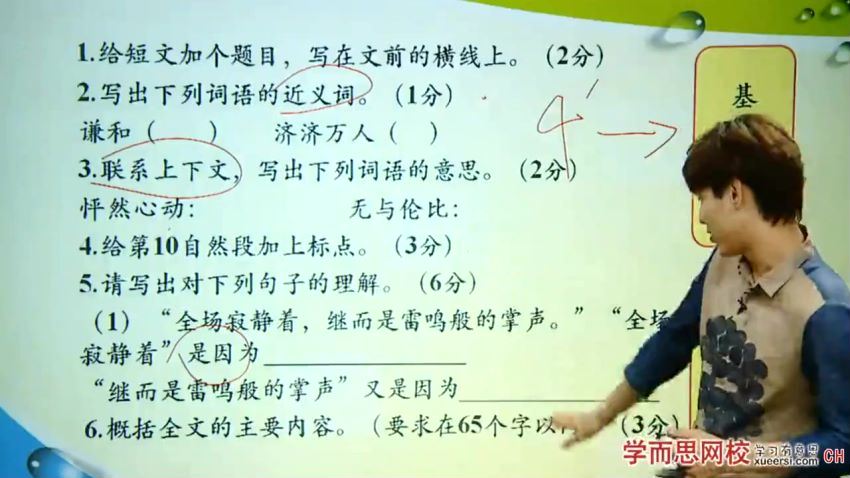 1.给短文加个题目，写在文前的横线上。（2分）
2.写出下列词语的近义词。（1分）
谦和（　　）　　济济万人（　）
3.联系上下文，写出下列词语的意思。（2分）
怦然心动：　　　　　无与伦比：
4.给第10自然段加上标点。（3分）
5.请写出对下列句子的理解。（6分）
（1）“全场寂静着，继而是雷鸣般的掌声。”“全场
寂静着”是因为
“继而是雷鸣般的掌声”又是因为
6.概括全文的主要内容。（要求在65个字以（3分）
4'
基
学而思网校
学习有意思
xueersi.com
CH